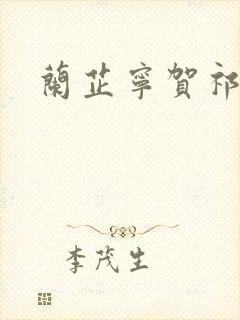 蘭芷寧賀祁
李茂生